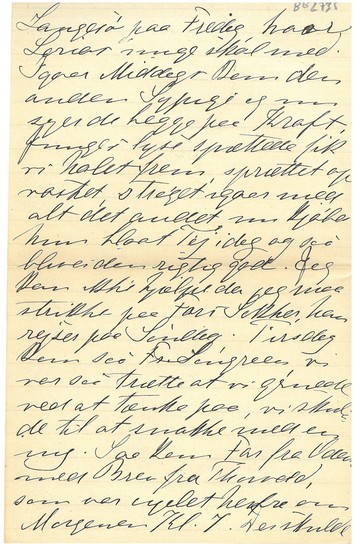 Langesø paa Fredag hvor
skal med.
Igaar Middags kom den
anden Sypige og nu
syer de begge paa Kraft,
lyse spættede fik
vi halet frem, sprættet op
vasket, strøget igaar med
alt det andet nu kjøber
hun blaat Tøj idag og saa
bliver den rigtig god. Jeg
kan ikke hjælpe da jeg maa
strikke paa Fars Sokker, han
rejser paa Søndag. Tirsdag
kom saa Fr. Lingreen vi
var saa trætte at vi
ved at tænke paa, vi skul-
de til at snakke med en
ny. Saa kom Far fra Oden
med Brev fra Thorvald,
som var cyclet herfra om
Morgenen Kl. 7. skulde
B62735